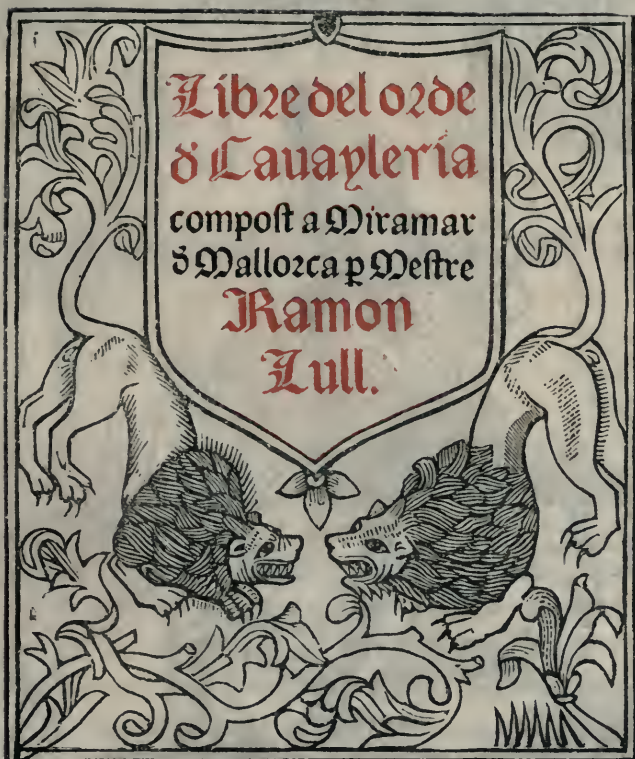 Libre del orde
đ Cauayleria
compoſt a Miramar
đ Mallorca p Meſtre
Ramon
Lull.